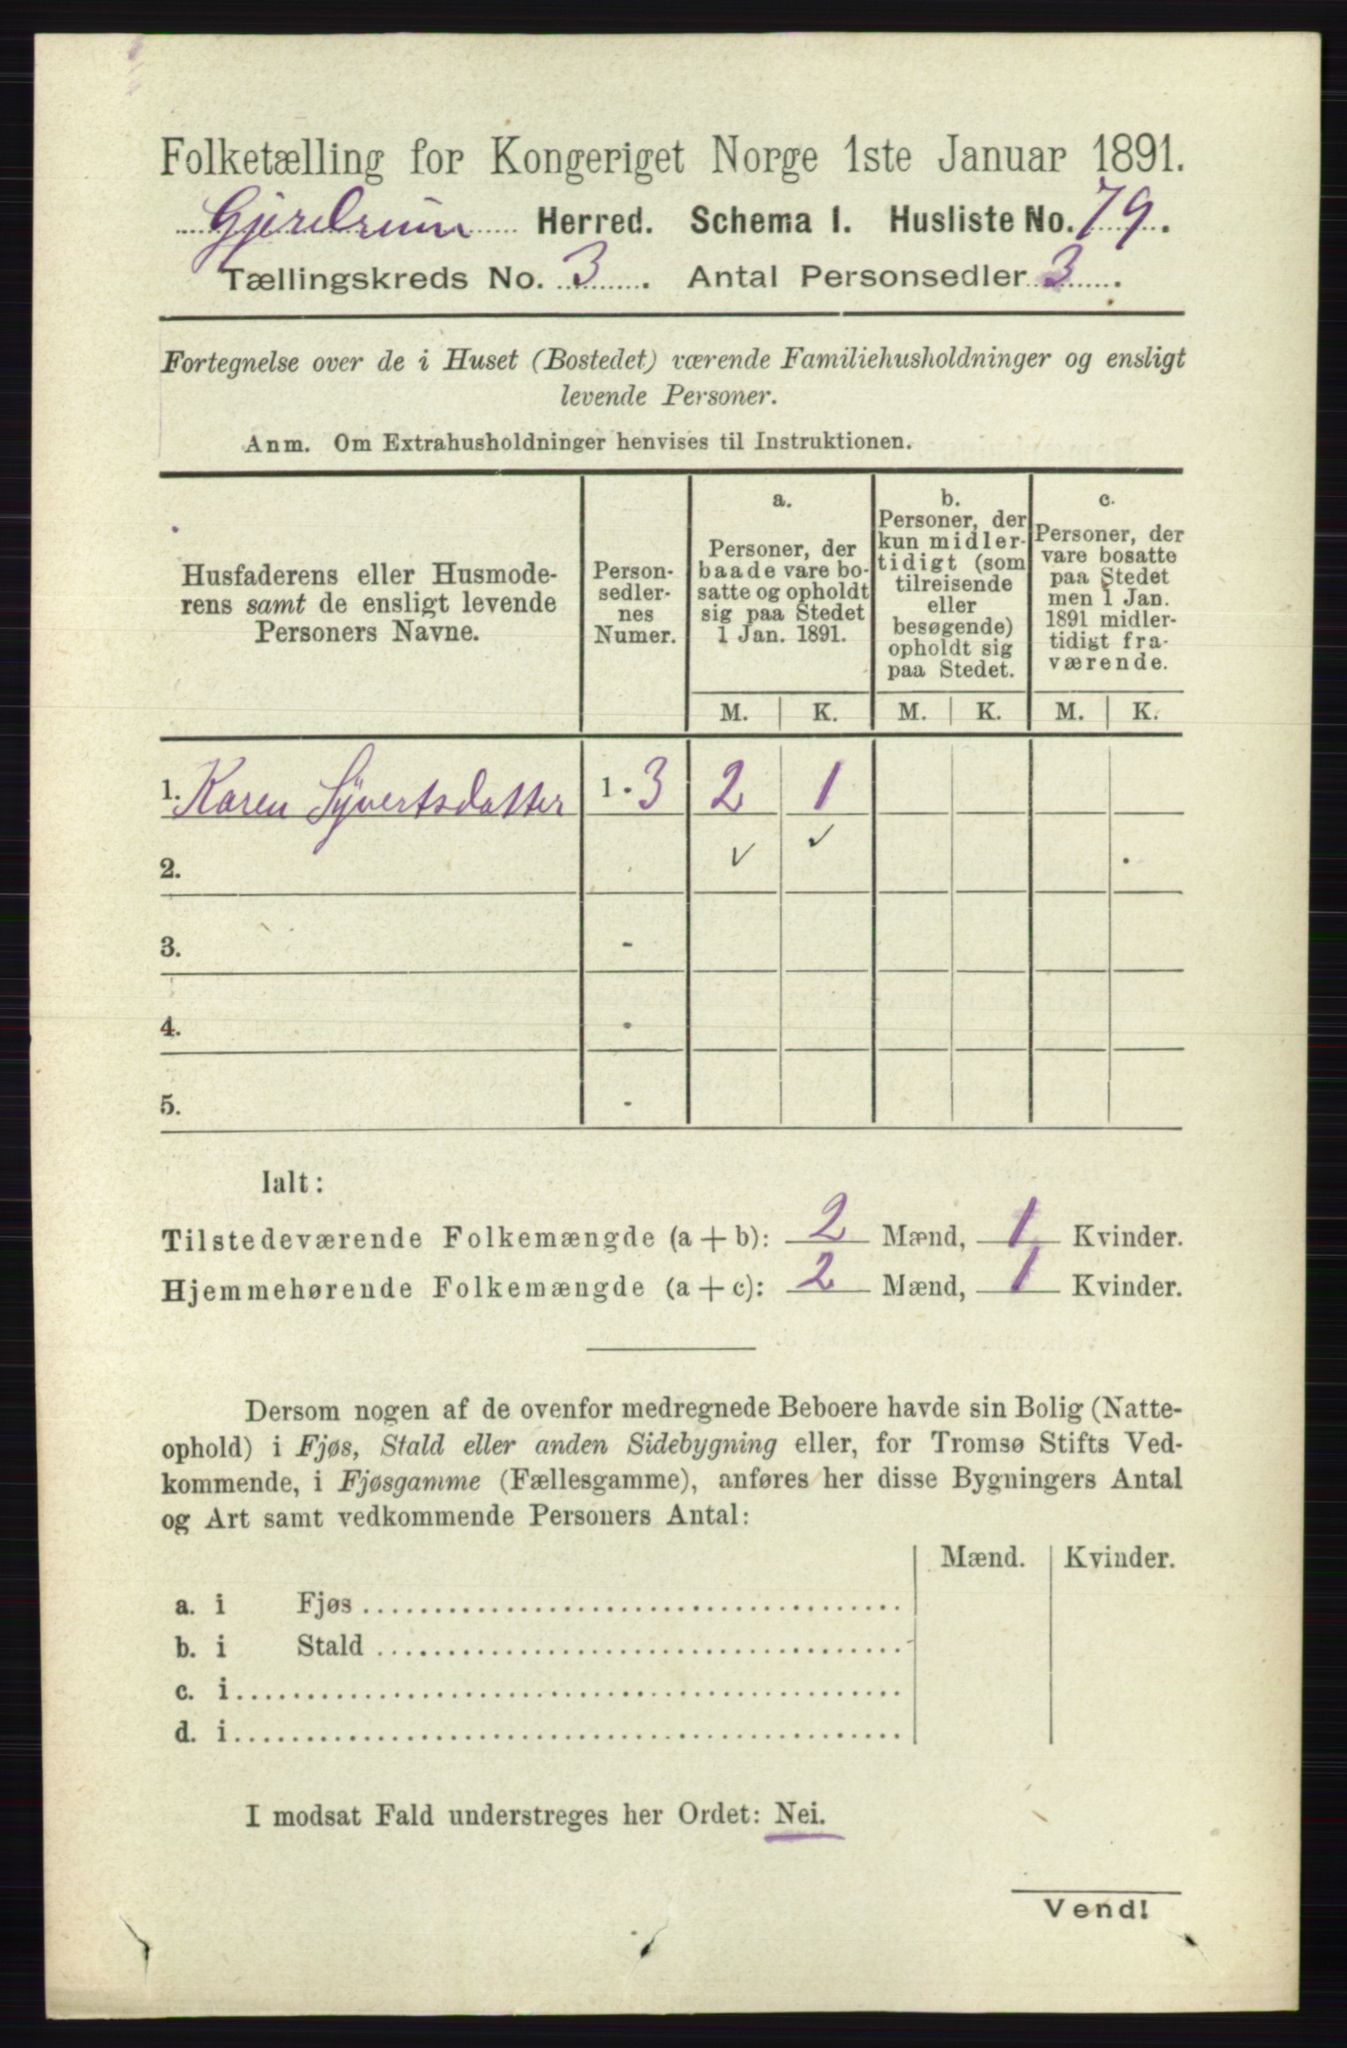 Folketælling for Kongeriget Norge 1ste Januar 1891.
Gjerdrum Herred. Schema 1. Husliste No. 79.
Tællingskreds No. 3. Antal Personsedler 3.
Fortegnelse over de i Huset (Bostedet) værende Familiehusholdninger og ensligt
levende Personer.
Anm. Om Extrahusholdninger henvises til Instruktionen.
Husfaderens eller Husmode-
rens samt de ensligt levende
Personers Navne.
Person-
sedler-
nes
Numer.
a.
Personer, der
baade vare bo-
satte og opholdt
sig paa Stedet
1 Jan. 1891.
b.
Personer, der
kun midler-
tidigt (som
tilreisende
eller
besøgende)
opholdt sig
paa Stedet.
c.
Personer, der
vare bosatte
paa Stedet
men 1 Jan.
1891 midler-
tidigt fra-
værende.
M. K. M. K. M. K.
1. Karen Syvertsdatter 1 - 3 2 1
2. ✓ ✓
3. -
4. -
5. -
Ialt:
Tilstedeværende Folkemængde (a + b): 2 Mænd, 1 Kvinder.
Hjemmehørende Folkemængde (a + c): 2 Mænd, 1 Kvinder.
Dersom nogen af de ovenfor medregnede Beboere havde sin Bolig (Natte-
ophold) i Fjøs, Stald eller anden Sidebygning eller, for Tromsø Stifts Ved-
kommende, i Fjøsgamme (Fællesgamme), anføres her disse Bygningers Antal
og Art samt vedkommende Personers Antal:
Mænd. Kvinder.
a. i Fjøs
b. i Stald
c. i
d. i
I modsat Fald understreges her Ordet: Nei.
Vend!